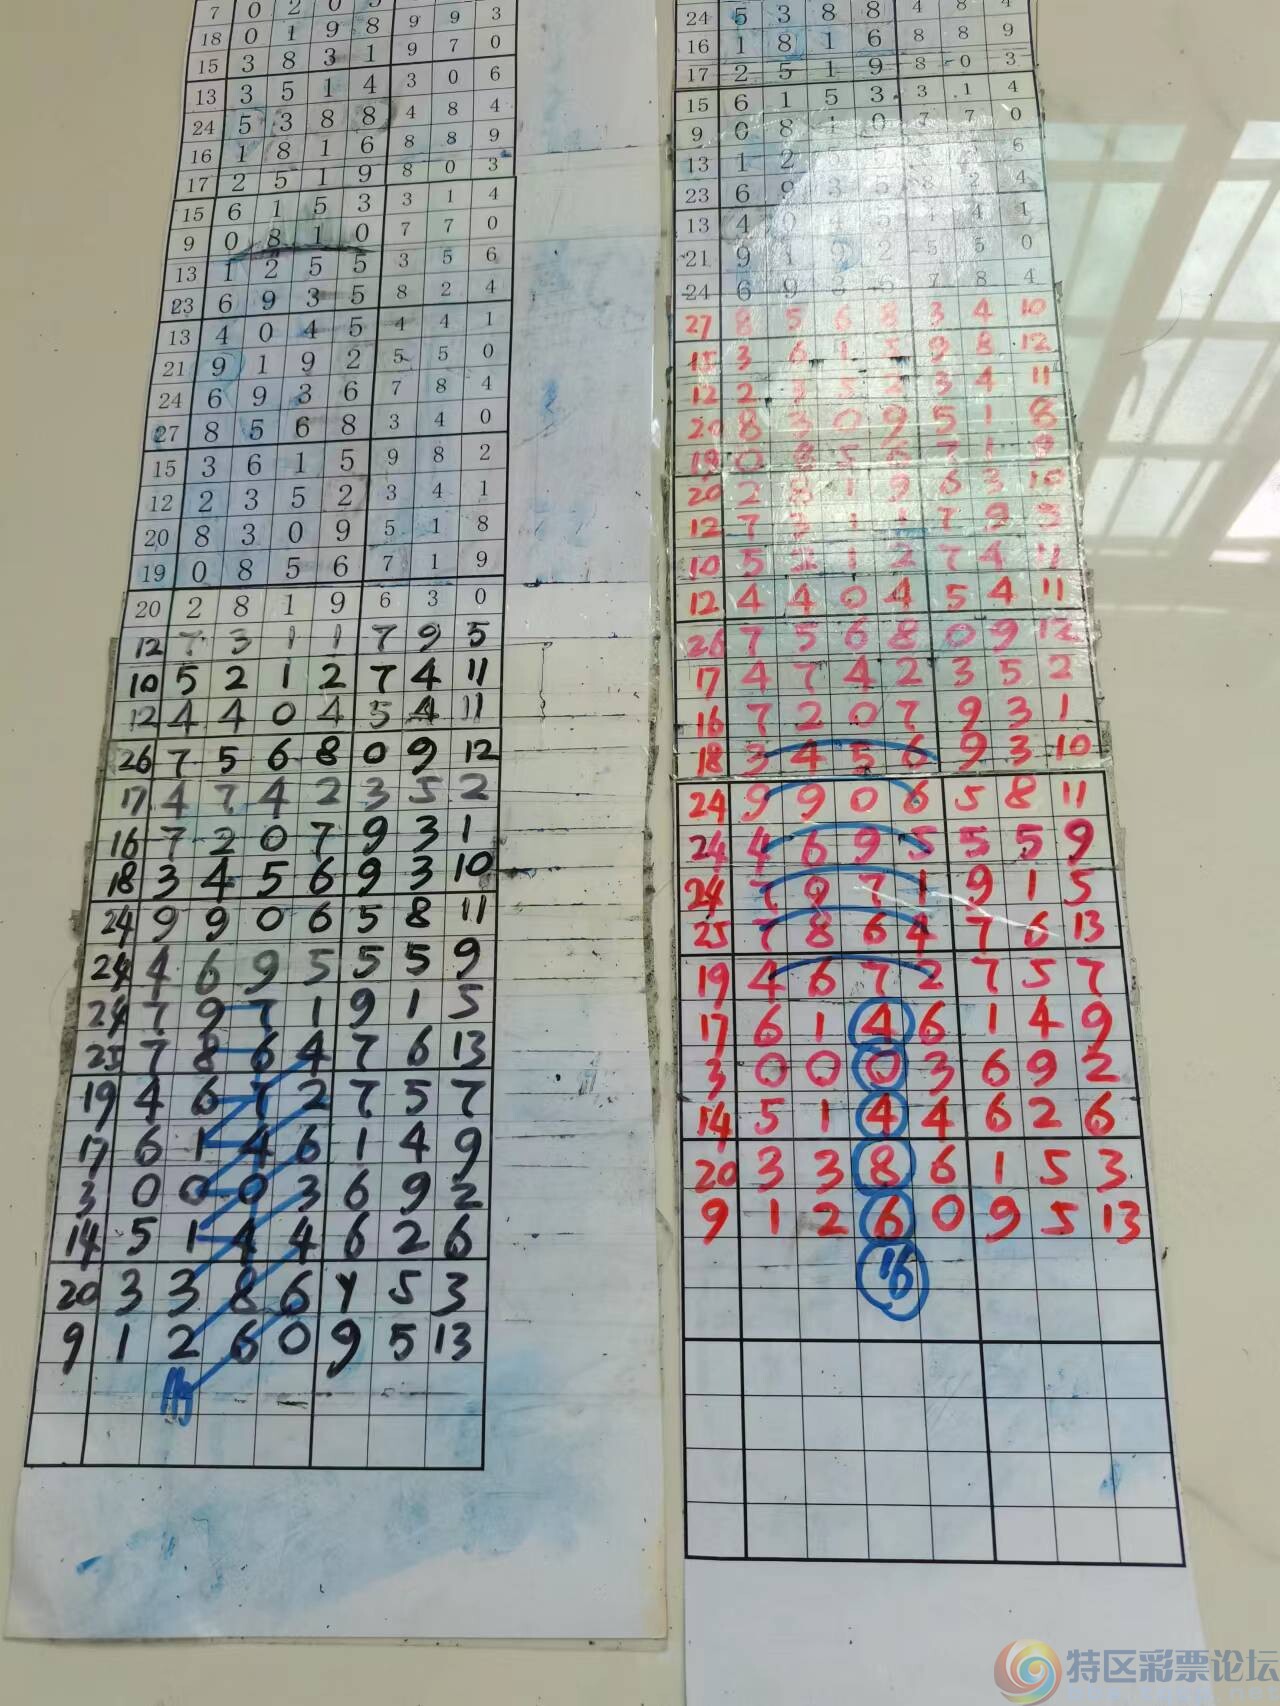 7 0 2 0
18 0 1 9 8 9 9 3
15 3 8 3 1 9 7 0
13 3 5 1 4 3 0 6
24 5 3 8 8 4 8 4
16 1 8 1 6 8 8 9
17 2 5 1 9 8 0 3
15 6 1 5 3 3 1 4
9 0 8 1 0 7 7 0
13 1 2 5 5 3 5 6
23 6 9 3 5 8 2 4
13 4 0 4 5 4 4 1
21 9 1 9 2 5 5 0
24 6 9 3 6 7 8 4
27 8 5 6 8 3 4 0
15 3 6 1 5 9 8 2
12 2 3 5 2 3 4 1
20 8 3 0 9 5 1 8
19 0 8 5 6 7 1 9
20 2 8 1 9 6 3 0
12 7 3 1 1 7 9 5
10 5 2 1 2 7 4 11
12 4 4 0 4 5 4 11
26 7 5 6 8 0 9 12
17 4 7 4 2 3 5 2
16 7 2 0 7 9 3 1
18 3 4 5 6 9 3 10
24 9 9 0 6 5 8 11
24 4 6 9 5 5 5 9
24 7 9 7 1 9 1 5
25 7 8 6 4 7 6 13
19 4 6 7 2 7 5 7
17 6 1 4 6 1 4 9
3 0 0 0 3 6 9 2
14 5 1 4 4 6 2 6
20 3 3 8 6 5 3
9 1 2 6 0 9 5 13
24 5 3 8 8 4 8 4
16 1 8 1 6 8 8 9
17 2 5 1 9 8 0 3
15 6 1 5 3 3 1 4
9 0 8 1 0 7 7 0
13 1 2 5 5 6
23 6 9 3 5 8 2 4
13 4 0 4 5 4 4 1
21 9 1 9 2 5 5 0
24 6 9 3 7 8 4
27 8 5 6 8 3 4 10
15 3 6 1 5 9 8 12
12 2 3 5 2 3 4 11
20 8 3 0 9 5 1 8
19 0 8 5 6 7 1 9
20 2 8 1 9 6 3 10
12 7 3 1 1 7 9
10 5 2 1 2 7 4 11
12 4 4 0 4 5 4 11
26 7 5 6 8 0 9 12
17 4 7 4 2 3 5 2
16 7 2 0 7 9 3 1
18 3 4 5 6 9 3 10
24 9 9 0 6 5 8 11
24 4 6 9 5 5 5 9
24 7 9 7 1 9 1 5
25 7 8 6 4 7 6 13
19 4 6 7 2 7 5 7
17 6 1 4 6 1 4 9
3 0 0 0 3 6 9 2
14 5 1 4 4 6 2 6
20 3 3 8 6 1 5 3
9 1 2 6 0 9 5 13
16
特区彩票论坛